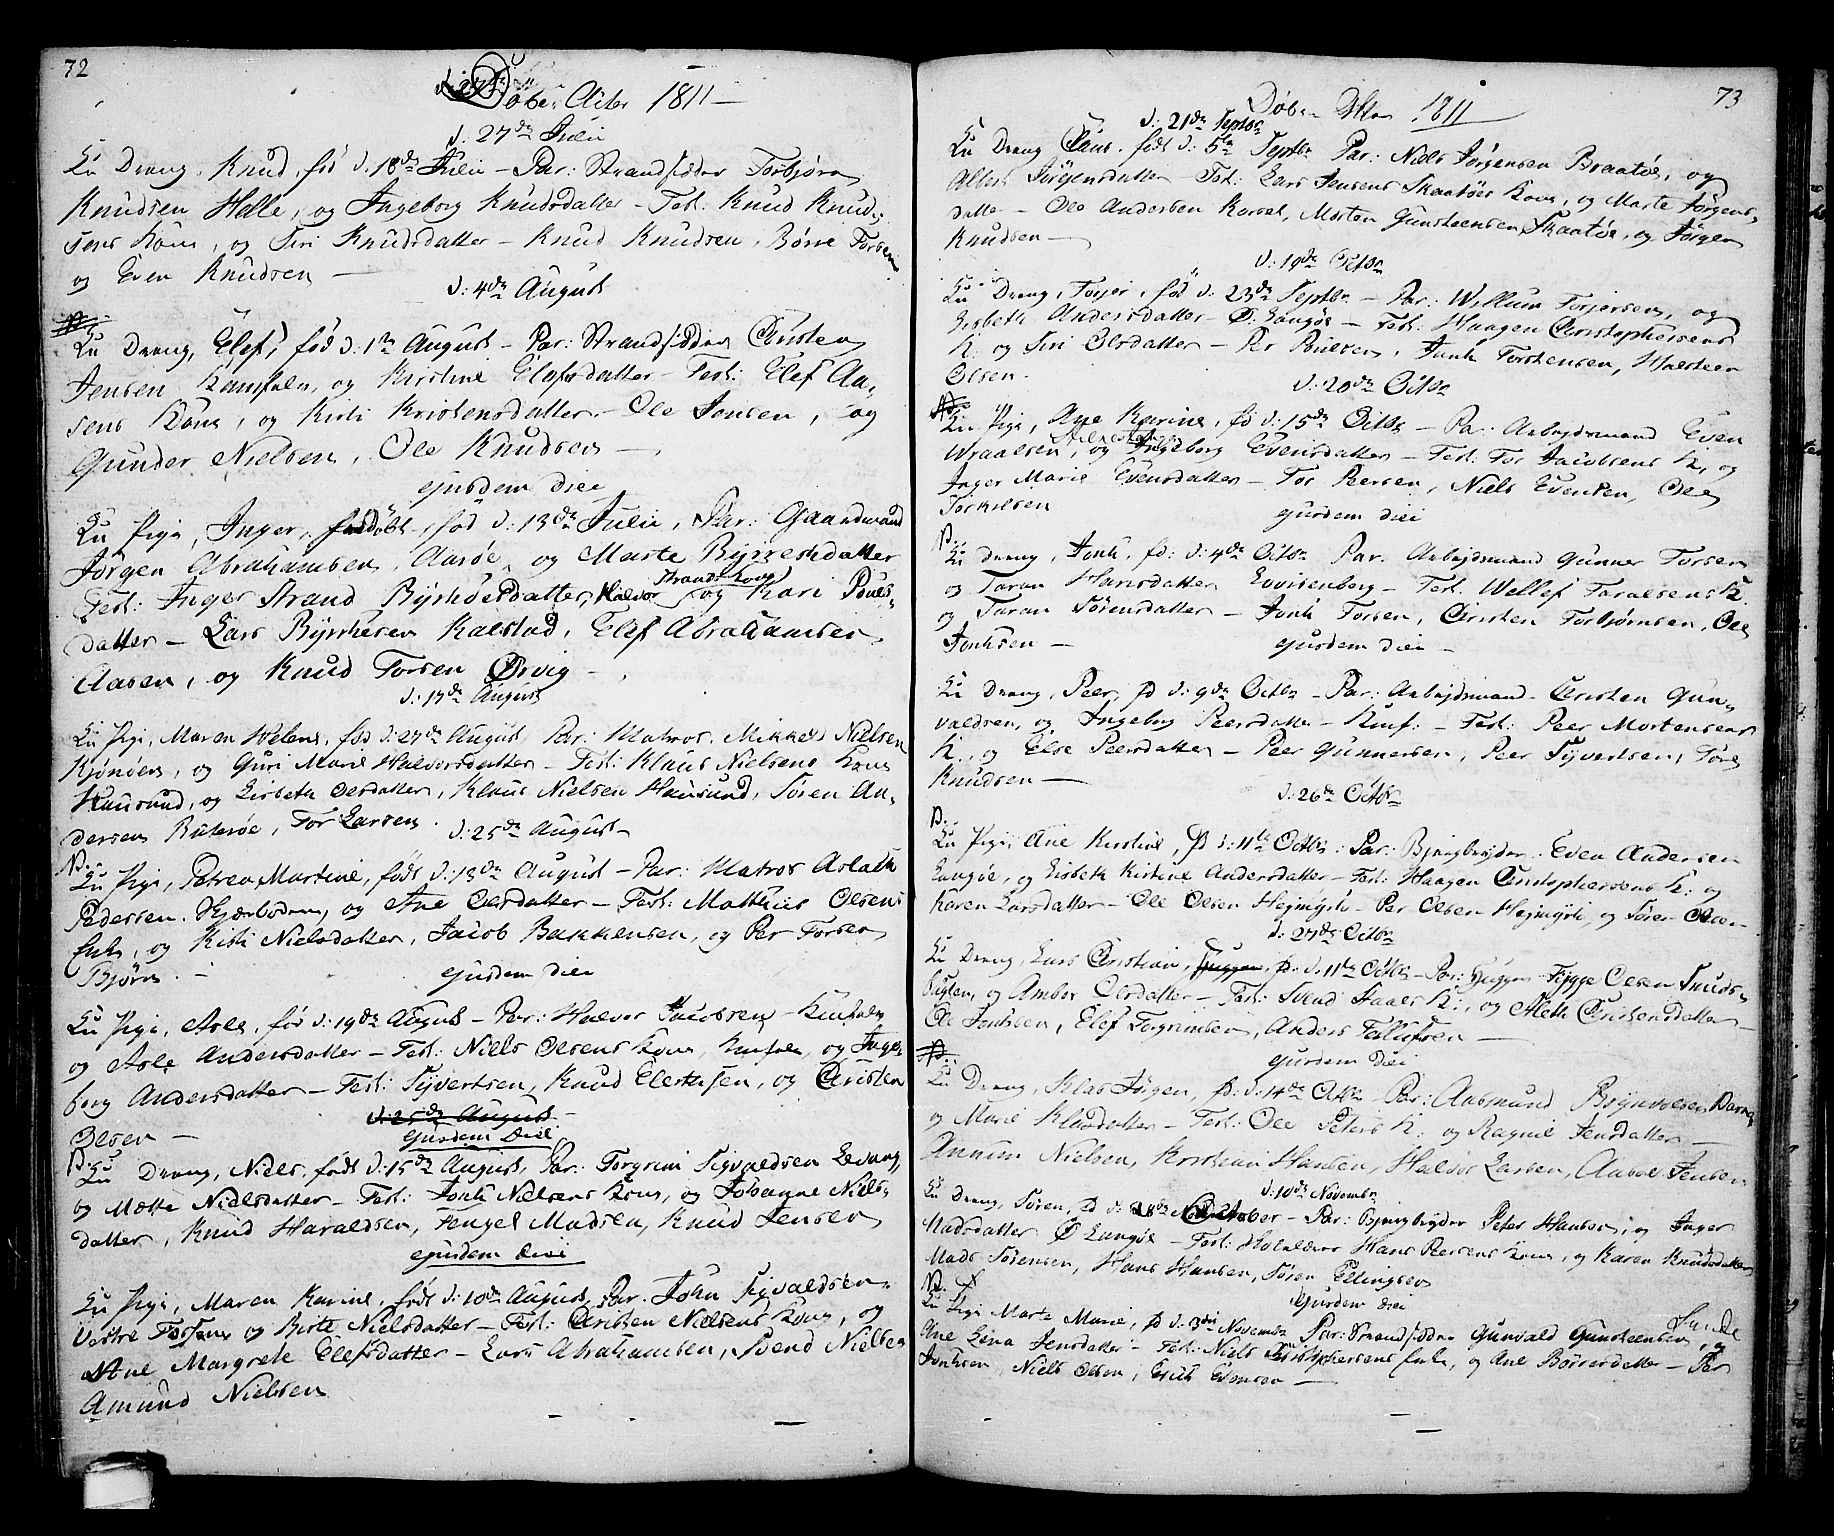 72
Døbe Acter 1811 —
d: 27de Julii
En Dreng, Knud, fød d: 18de Julii — Par: Strandsidder Torbjørn
Knudsen Helle, og Ingeborg Knudsdatter — Test: Knud Knud-
sens Kone, og Siri Knudsdatter — Knud Knudsen, Børre Torsen
og Even Knudsen —
d: 4de August
En Dreng, Elef, fød d: 1ste August — Par: Strandsidder Christen
Jensen, og Kirstine Elefsdatter — Test: Elef Aa-
sens Kone, og Kirsti Kristensdatter — Ole Jensen, og
Gunder Nielsen, Ole Knudsen —
ejusdem diei
En Pige, Inger, døbt, fød d: 13de Julii, Par: Gaardmand
Jørgen Abrahamsen, Aarøe, og Marte Byrresdatter
Test: Inger Strand Byrhesdatter, Halvor Strands Kone og Kari Pouls-
datter — Lars Byrresen Kalstad, Elef Abrahamsen
Aasen, og Knud Torsen Ørvig —
d: 17de August
En Pige, Maren Helene, fød d: 27de August, Par: Matros Mikkel Nielsen
Kjønøen, og Guri Marie Halvorsdatter — Test: Klaus Nielsens Kone
Hausund, og Lisbeth Olsdatter, Klaus Nielsen Hausund, Søren An-
dersen Buterøe, Tor Larsen.
d: 25de August —
N.
En Pige, Petrea Martine, født d: 13de August — Par: Matros Aslak
Pedersen Kjærboden, og Ane Olsdatter — Test: Mathias Olsens
Enke, og Kirsti Nielsdatter, Jacob Bakkensen, og Per Torsen
Bjørn. —
ejusdem diei
En Pige, Asle, fød d: 19de August — Par: Halvor Jacobsen
og Asle Andersdatter — Test: Niels Olsens Kone, og Inge-
borg Andersdatter — Test: Syvertsen, Knud Ellefsen, og Christen
Olsen —
d: 25de August —
ejusdem diei
N.
En Dreng, Niels, født d: 15de August, Par: Torgrim Sigvaldsen Levang,
og Mætte Nielsdatter — Test: Jonh Nielsens Kone, og Johanne Niels-
datter, Knud Haraldsen, Tengel Madsen, Knud Jensen
ejusdem diei
En Pige, Maren Karine, født d: 10de August, Par: John Sigvaldsen
Vestre og Birte Nielsdatter — Test: Christen Nielsens Kone, og
Ane Margrete Elefsdatter — Lars Abrahamsen, Svend Nielsen
Amund Nielsen
73
Døbe Acter 1811
d: 21de Septbr
En Dreng Claus, født d: 5te Septbr Par: Niels Jørgensen Braatøe, og
Jørgensdatter — Test: Lars Jensens Skaatøes Kone, og Marte Jørgens-
datte — Ole Andersen Korset, Morten Gunsteensen Skaatøe, og Jørgen
Knudsen —
d: 19de Octbr
En Dreng, Torjer, fød d: 23de Septbr — Par: Willum Torjersen, og
Lisbeth Andersdatter Langøe — Test: Haagen Christophersens
K: og Siri Olsdatter — Per Poulsen, Jonh Torstensen, Halsteen
Olsen —
d: 20de Octbr
En Pige, Ane Karine, fd d: 15de Octbr — Par: Arbejdsmand Even
Wraalsen, og Ingeborg Evensdatter — Test: Tor Jacobsens K:, og
Inger Marie Evensdatter — Tor Peersen, Niels Evensen, Ole
Torkilsen
ejusdem diei
N.
En Dreng, Jonh, fd: d: 4de Octbr Par: Arbejdsmand Gunner Torsen
og Taran Hansdatter — Test: Wellef Taralsens K.
og Taran Sørensdatter — Jonh Torsen, Christen Torbjørnsen, Ole
Jonhsen —
ejusdem diei —
En Dreng, Peer, fd d: 9de Octbr — Par: Arbejdsmand Christen Gun-
valdsen, og Ingeborg Peersdatter — Test: Peer Mortensens
K., og Else Peersdatter — Peer Gunnersen, Peer Syvertsen, Tore
Knudsen —
d: 26de Octbr
N.
En Pige, Ane Kirstine, fd d: 11te Octbr: Par: Bjergbryder Even Andersen
Langøe, og Lisbeth Kirstine Andersdatter — Test: Haagen Christophersens K: og
Karen Larsdatter — Ole Olsen — Per Olsen, og Søren
d: 27de Octbr
En Dreng, Lars Christian, fd. d: 11te Octbr — Par: Tygge Olsen Snuds-
bugten, og Amber Olsdatter — Test: Svend K:, og Mette Christensdatter —
Ole Jonhsen, Elef Torgrimsen, Anders Tellefsen —
ejusdem diei
En Dreng, Klas Jørgen, fd: d: 14de Octbr — Par: Aasmund Brynvolsen
og Marie Klasdatter — Test: Ole Peters K: og Ragnil Jensdatter —
Annun Nielsen, Kristian Hansen, Halvor Larsen, Aabel Jensen
d: 10de Novembr
En Dreng, Søren, fd d: October — Par: Bjergbryder Peter Hansen, og Inger
Madsdatter Langøe — Test: Hans Peersens Kone, og Karen Knudsdatter
Mads Sørensen, Hans Hansen, Søren Ellingsen
N.
ejusdem diei
En Pige Marte Marie, fd d: 3die Novembr Par: Strandsidder Gunvald Gunsteensen Sande, og
Ane Lena Jensdatter — Test: Niels Christophersens Enke, og Ane Børresdatter — Per
Jonhsen, Niels Olsen, Erich Evensen —